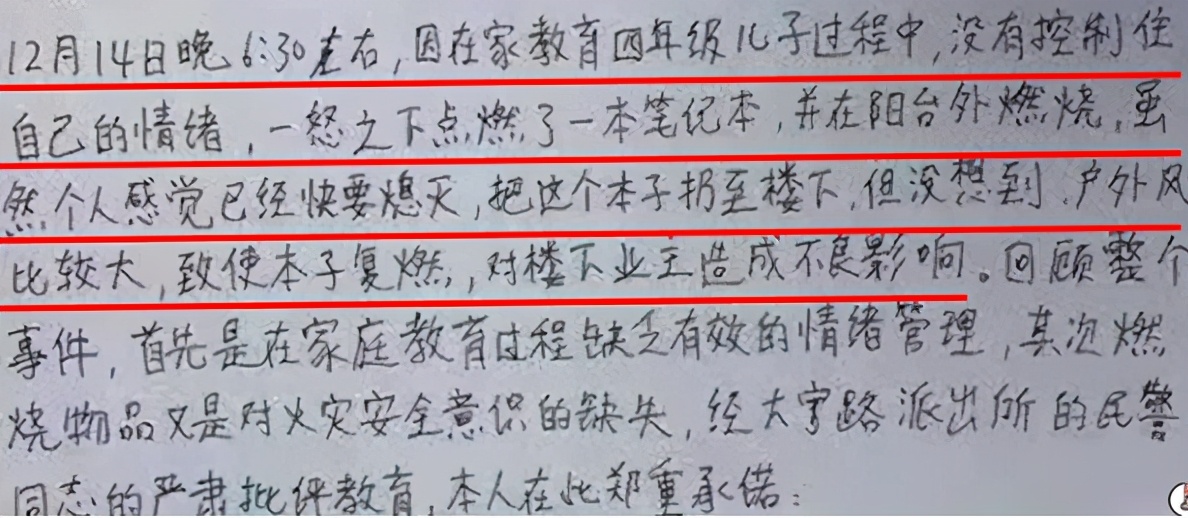 12月14日晚6:30左右,因在家教育四年级儿子过程中,没有控制住
自己的情绪,一怒之下点燃了一本笔记本,并在阳台外燃烧,虽
然个人感觉已经快要熄灭,把这个本子扔至楼下,但没想到户外风
比较大,致使本子复燃,对楼下业主造成不良影响。回顾整个
事件,首先是在家庭教育过程缺乏有效的情绪管理,其次燃
烧物品又是对火灾安全意识的缺失,经大宁路派出所的民警
同志的严肃批评教育,本人在此郑重承诺: